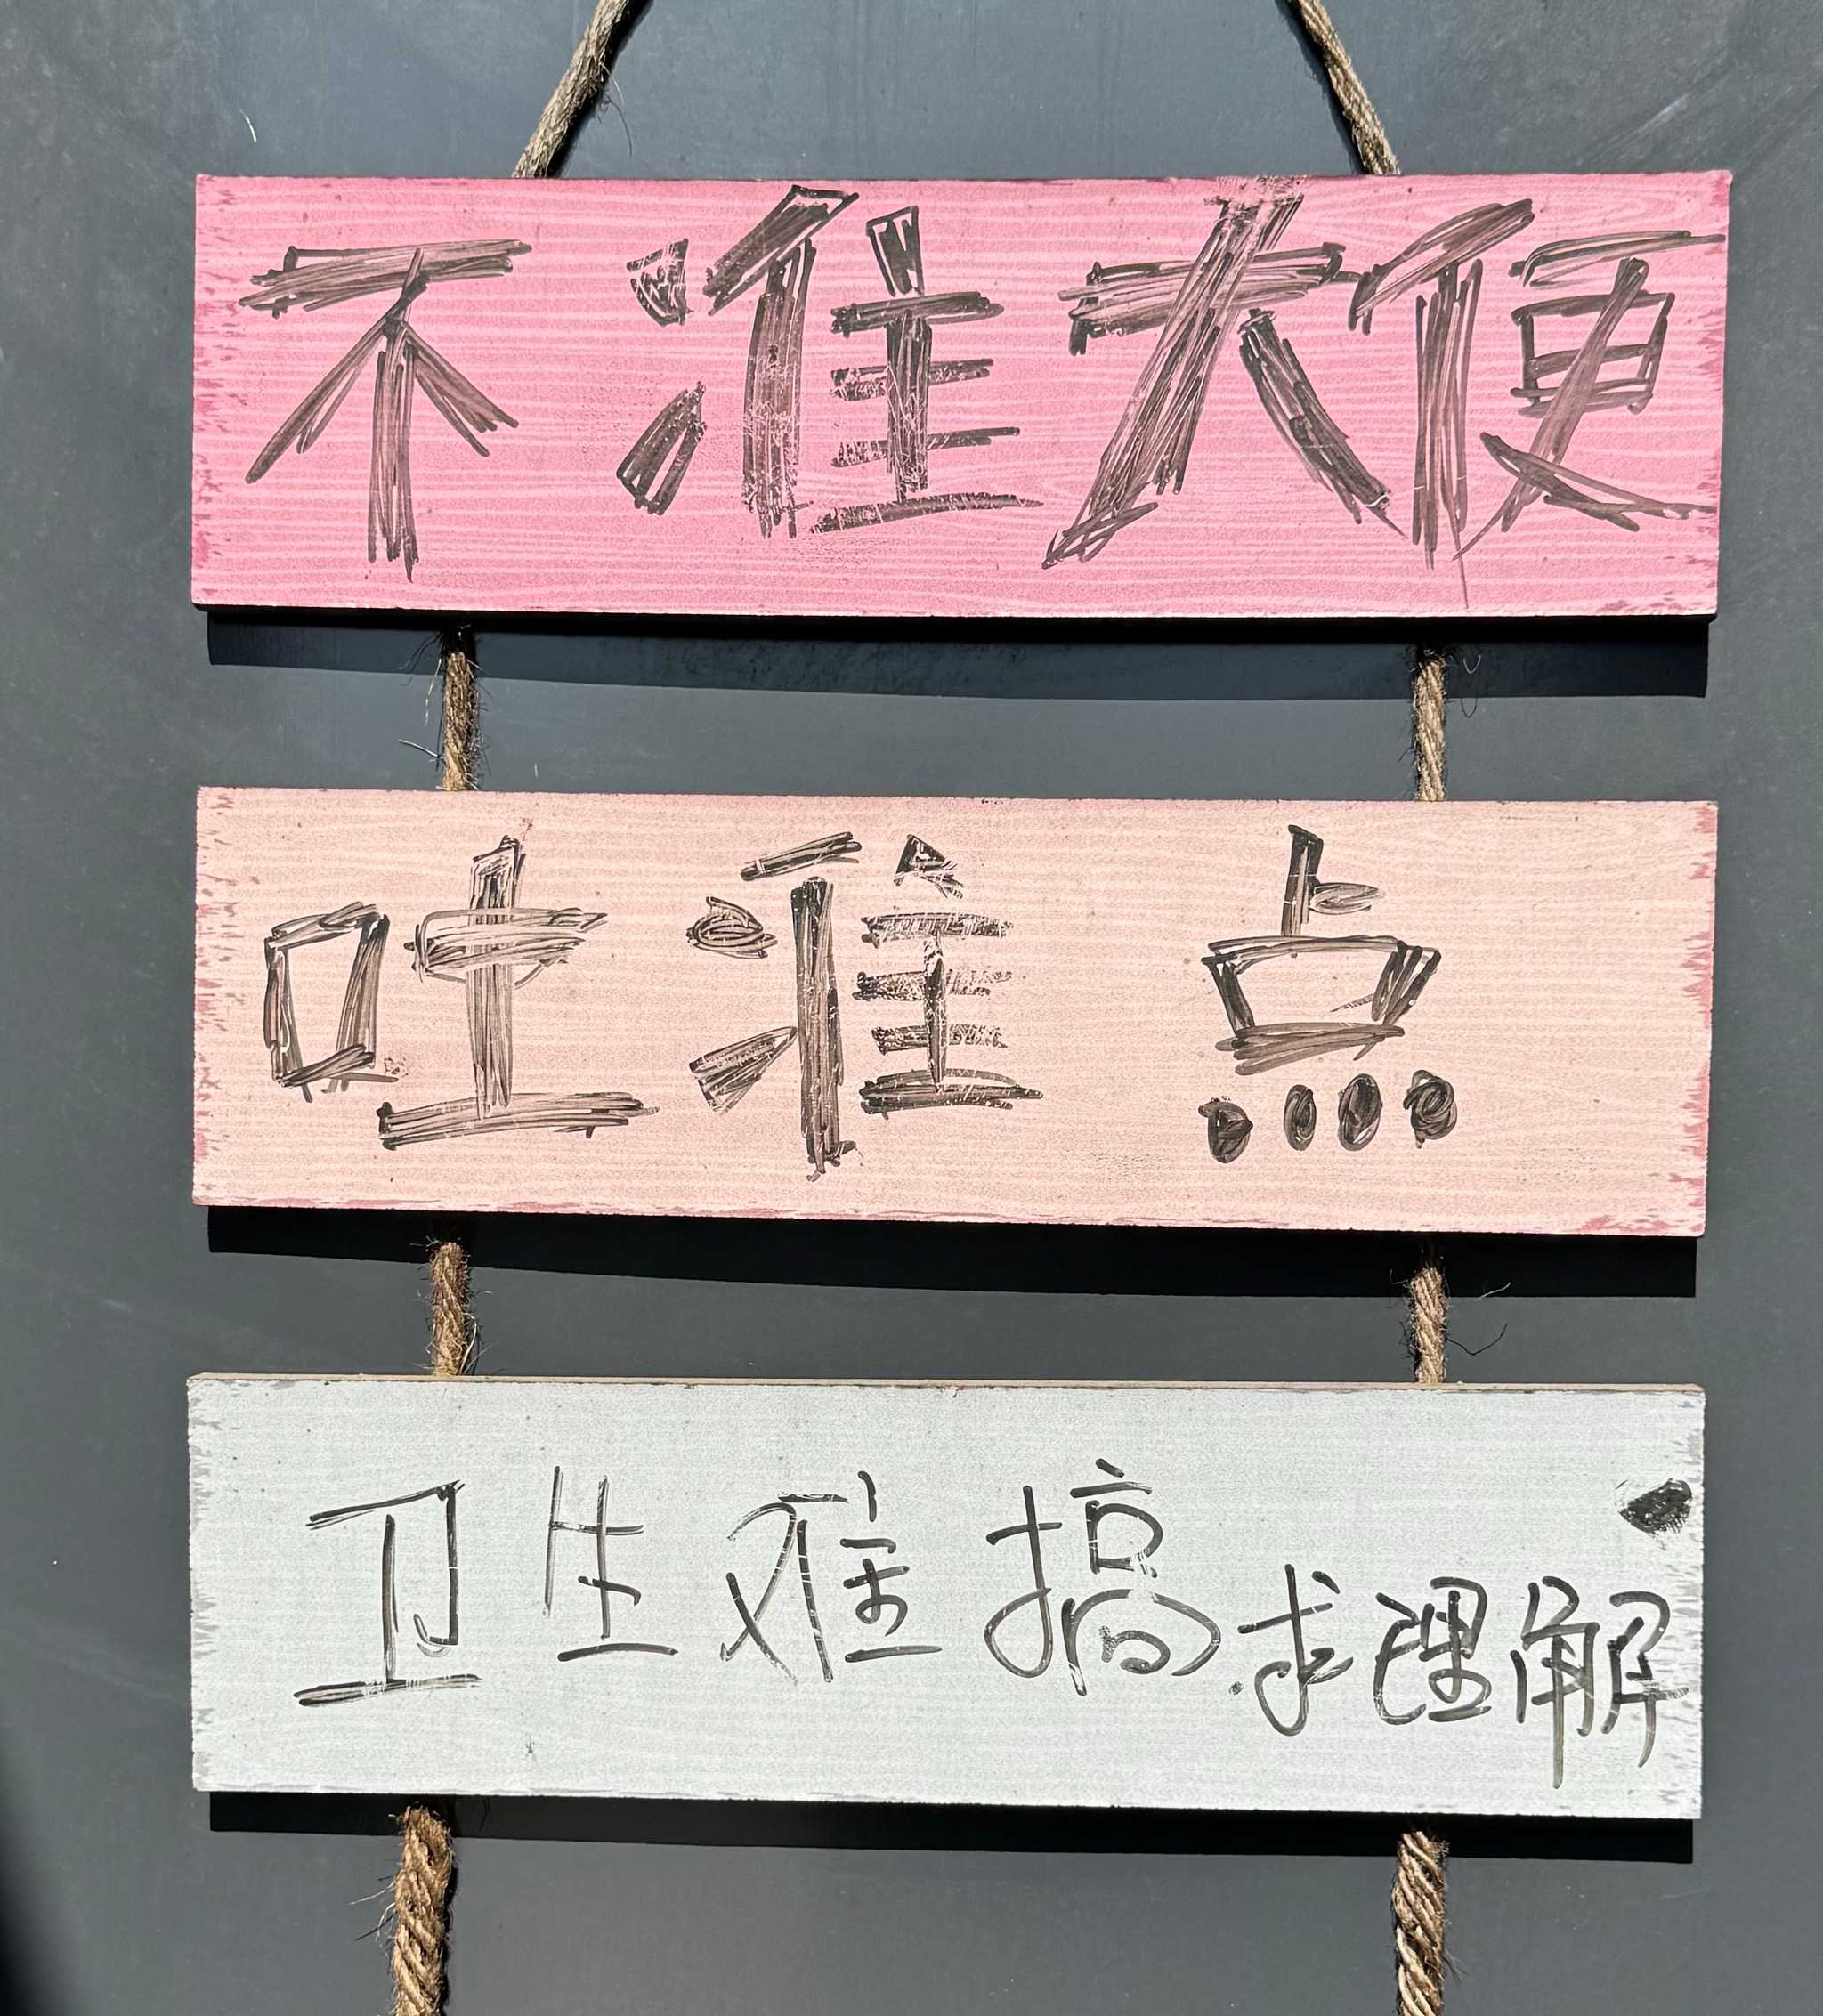 不准大便
吐准点
卫生难搞.求理解